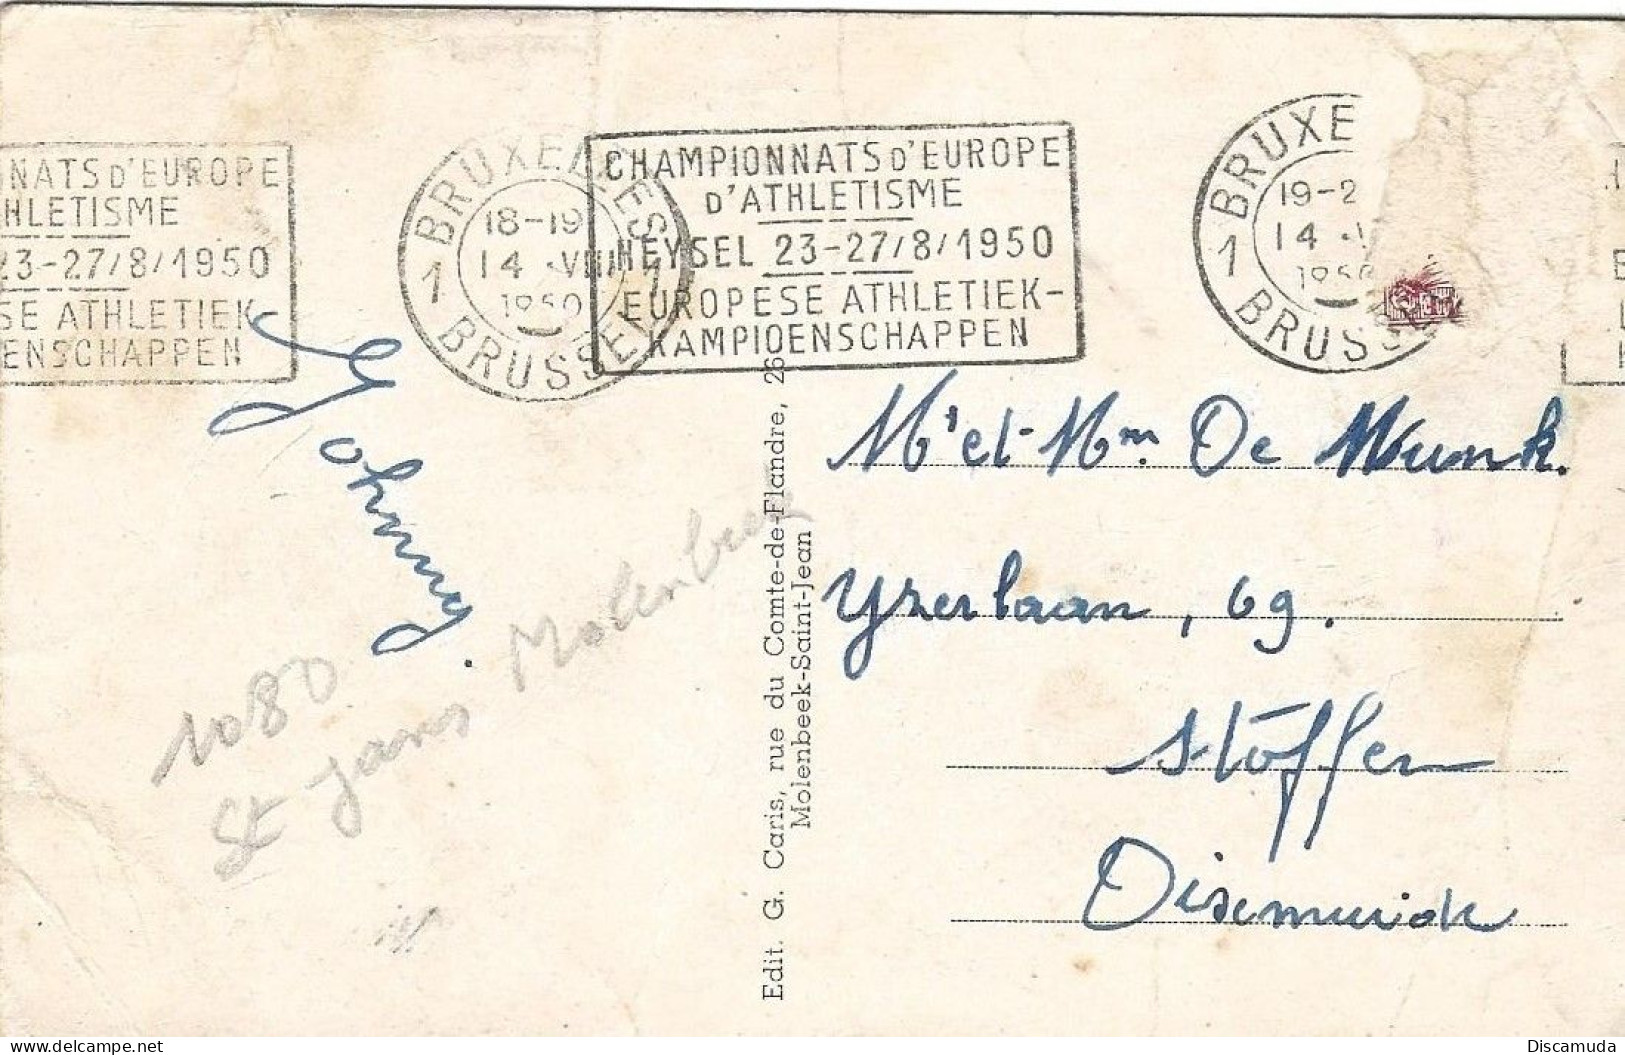 NNATS D'EUROPE
HLETISME
23-27/8/1950
SE ATHLETIEK
ENSCHAPPEN
BRUXELLES
18-19
14 VIII
1950
1 1
BRUSSEL
CHAMPIONNATS D'EUROPE
D'ATHLETISME
HEYSEL 23-27/8/1950
EUROPESE ATHLETIEK-
KAMPIOENSCHAPPEN
BRUXE
19-2
14
1950
1
BRUSSE
Johnny.
1080
St Jans Molenbeek
Edit. G. Caris, rue du Comte-de-Flandre, 26
Molenbeek-Saint-Jean
Mr et Mm De Munk.
Yzerlaan, 69.
Stöffen
Discmuide
delcampe.net
Discamuda